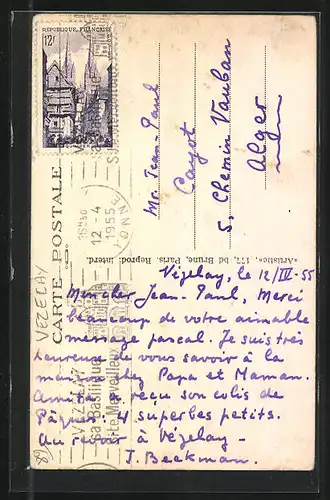 RÉPUBLIQUE FRANÇAISE
12F
CARTE POSTALE
VEZELAY
16H30
12-4
1955
YONNE
VEZELAY
Sa Basilique
Site Merveilleux
Mr. Jean-Paul
Cayot
5, Chemin Vauban
Alger
«Artistic», 177, bd Brune, Paris. Reprod. interd.
Vézelay, le 12/IV-55
Mon cher Jean-Paul, Merci
beaucoup de votre aimable
message pascal. Je suis très
heureuse de vous savoir à la
maison chez Papa et Maman.
a reçu son colis de
Pâques. 4 superbes petits.
Au revoir à Vézelay-
J. Beekman.
89